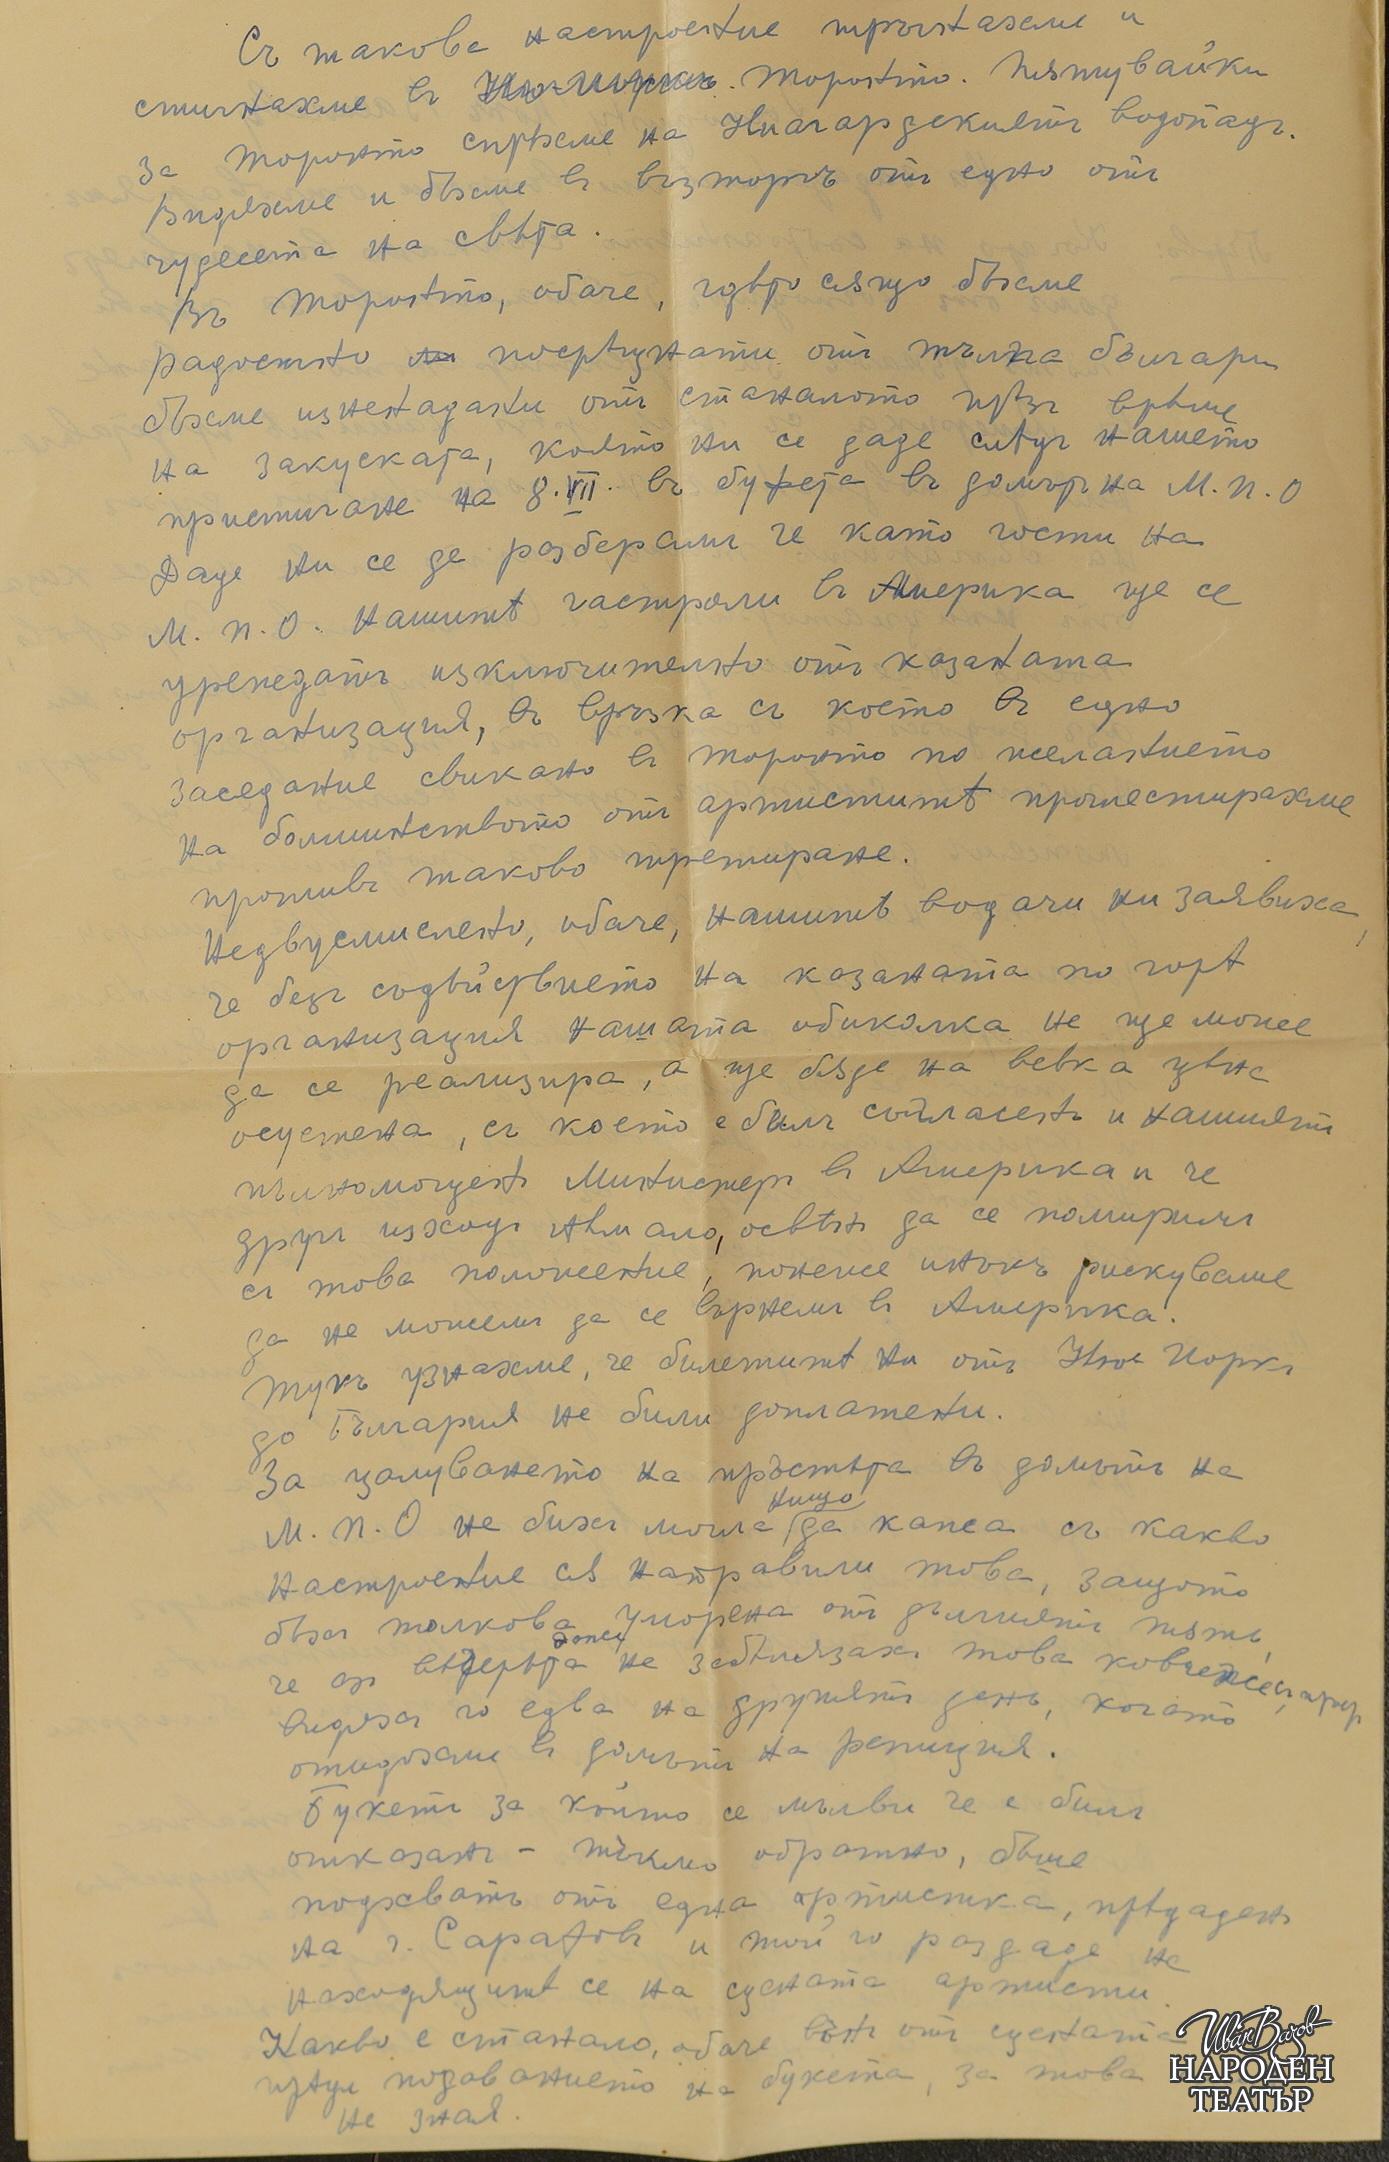 Съ такова настроение тръгнахме и
стигнахме въ Ню-Иоркъ. Торонто. Пѫтувайки
за Торонто спрѣхме на Ниагардския тъ водопадъ.
Видяхме и бѣхме въ възторгъ отъ едно отъ
чудесета на свѣта.
Въ Торонто, обаче, гдѣто сѫщо бѣхме
радостно посрѣщнати отъ тълпа българи
бѣхме изненадани отъ станалото прѣзъ врѣме
на закуската, която ни се даде слѣдъ нашето
пристигане на 8.VII. въ буфета въ домътъ на М.П.О
Даде ни се да разберемъ че като гости на
М.П.О. нашитѣ гастроли въ Америка ще се
уредятъ изключително отъ казаната
организация, въ връзка съ което въ едно
заседание свикано въ Торонто по желанието
на болшинството отъ артиститѣ протестирахме
противъ таково третиране.
Недвусмислено, обаче, нашитѣ водачи ни заявиха,
че безъ содѣйствието на казаната по горѣ
организация нашата обиколка не ще може
да се реализира, а ще бѫде на всѣка цѣна
осуетена, съ което е билъ съгласенъ и нашиятъ
пълномощенъ Министеръ въ Америка и че
другъ изходъ нѣмало, освѣнъ да се помиримъ
съ това положение, понеже инакъ рискуваме
да не можемъ да се върнемъ въ Америка.
Тукъ узнахме, че билетитѣ ни отъ Ню Иоркъ
до България не били доплатени.
За цалуването на пръстьта въ домътъ на
М.П.О не бихъ могла нищо да кажа съ какво
настроение сѫ направили това, защото
бѣхъ толкова уморена отъ дългиятъ пѫть,
че азъ вечерьта дори не забѣлязахъ това ковчеже,
видяхъ го едва на другиятъ день, когато
отидохме въ домътъ на репиция.
Букетъ за който се мълви че е билъ
отказанъ - тъкмо обратно, бѣше
подхватъ отъ една артистка, прѣдаденъ
на г. Сарафовъ и той го раздаде на
находящитѣ се на сцената артисти.
Какво е станало, обаче вънъ отъ сцената
прѣди подаванието на букета, за това
не зная.
Иван Вазов
НАРОДЕН
ТЕАТЪР